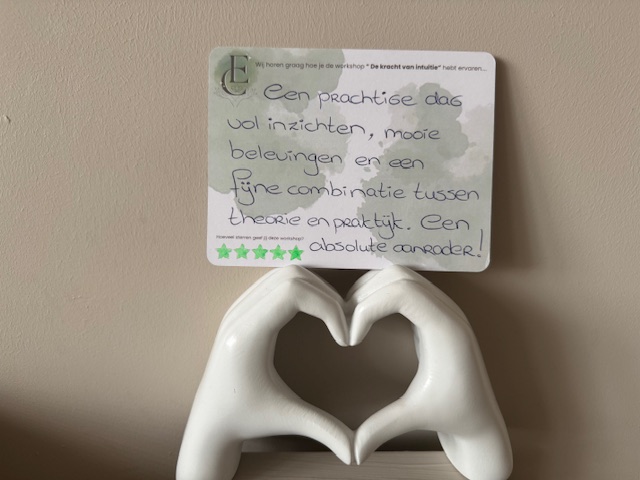 EC
Wij horen graag hoe je de workshop " De kracht van intuïtie" hebt ervaren...
Een prachtige dag
vol inzichten, mooie
belevingen en een
fijne combinatie tussen
theorie en praktijk. Een
absolute aanrader!
Hoeveel sterren geef jij deze workshop?